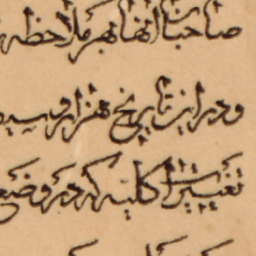 صاحبان آنها بهر ملاحظه
و در این تاریخ هزار و سیصد
تغییرات کلیه که در وضع